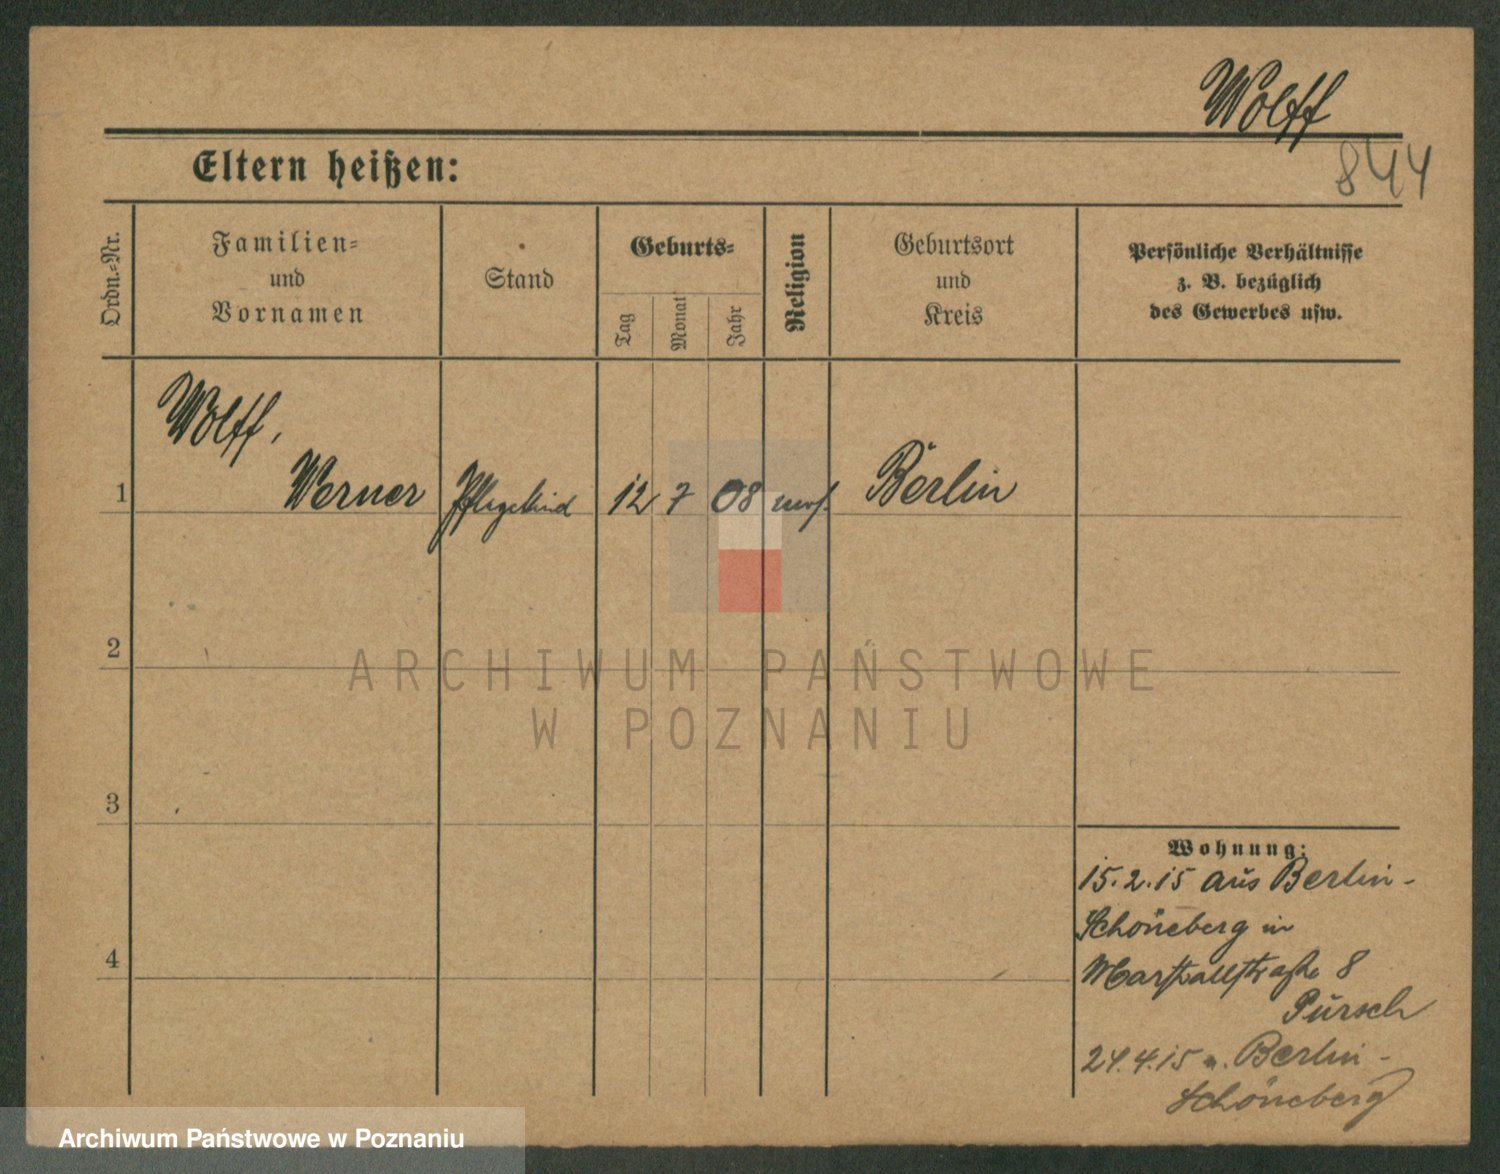 Wolff
844
Eltern heißen:
Ordn.-Nr.
Familien-
und
Vornamen
Stand
Geburts-
Tag
Monat
Jahr
Religion
Geburtsort
und
Kreis
Persönliche Verhältnisse
z. B. bezüglich
des Gewerbes usw.
Wolff,
1 Werner Pflegekind 12 7 08 Berlin
2
3
4
Wohnung:
15.2.15 aus Berlin-
Schöneberg in
Marstallstraße 8
Pursch
24.4.15 n. Berlin-
Schöneberg
ARCHIWUM PAŃSTWOWE
W POZNANIU
Archiwum Państwowe w Poznaniu